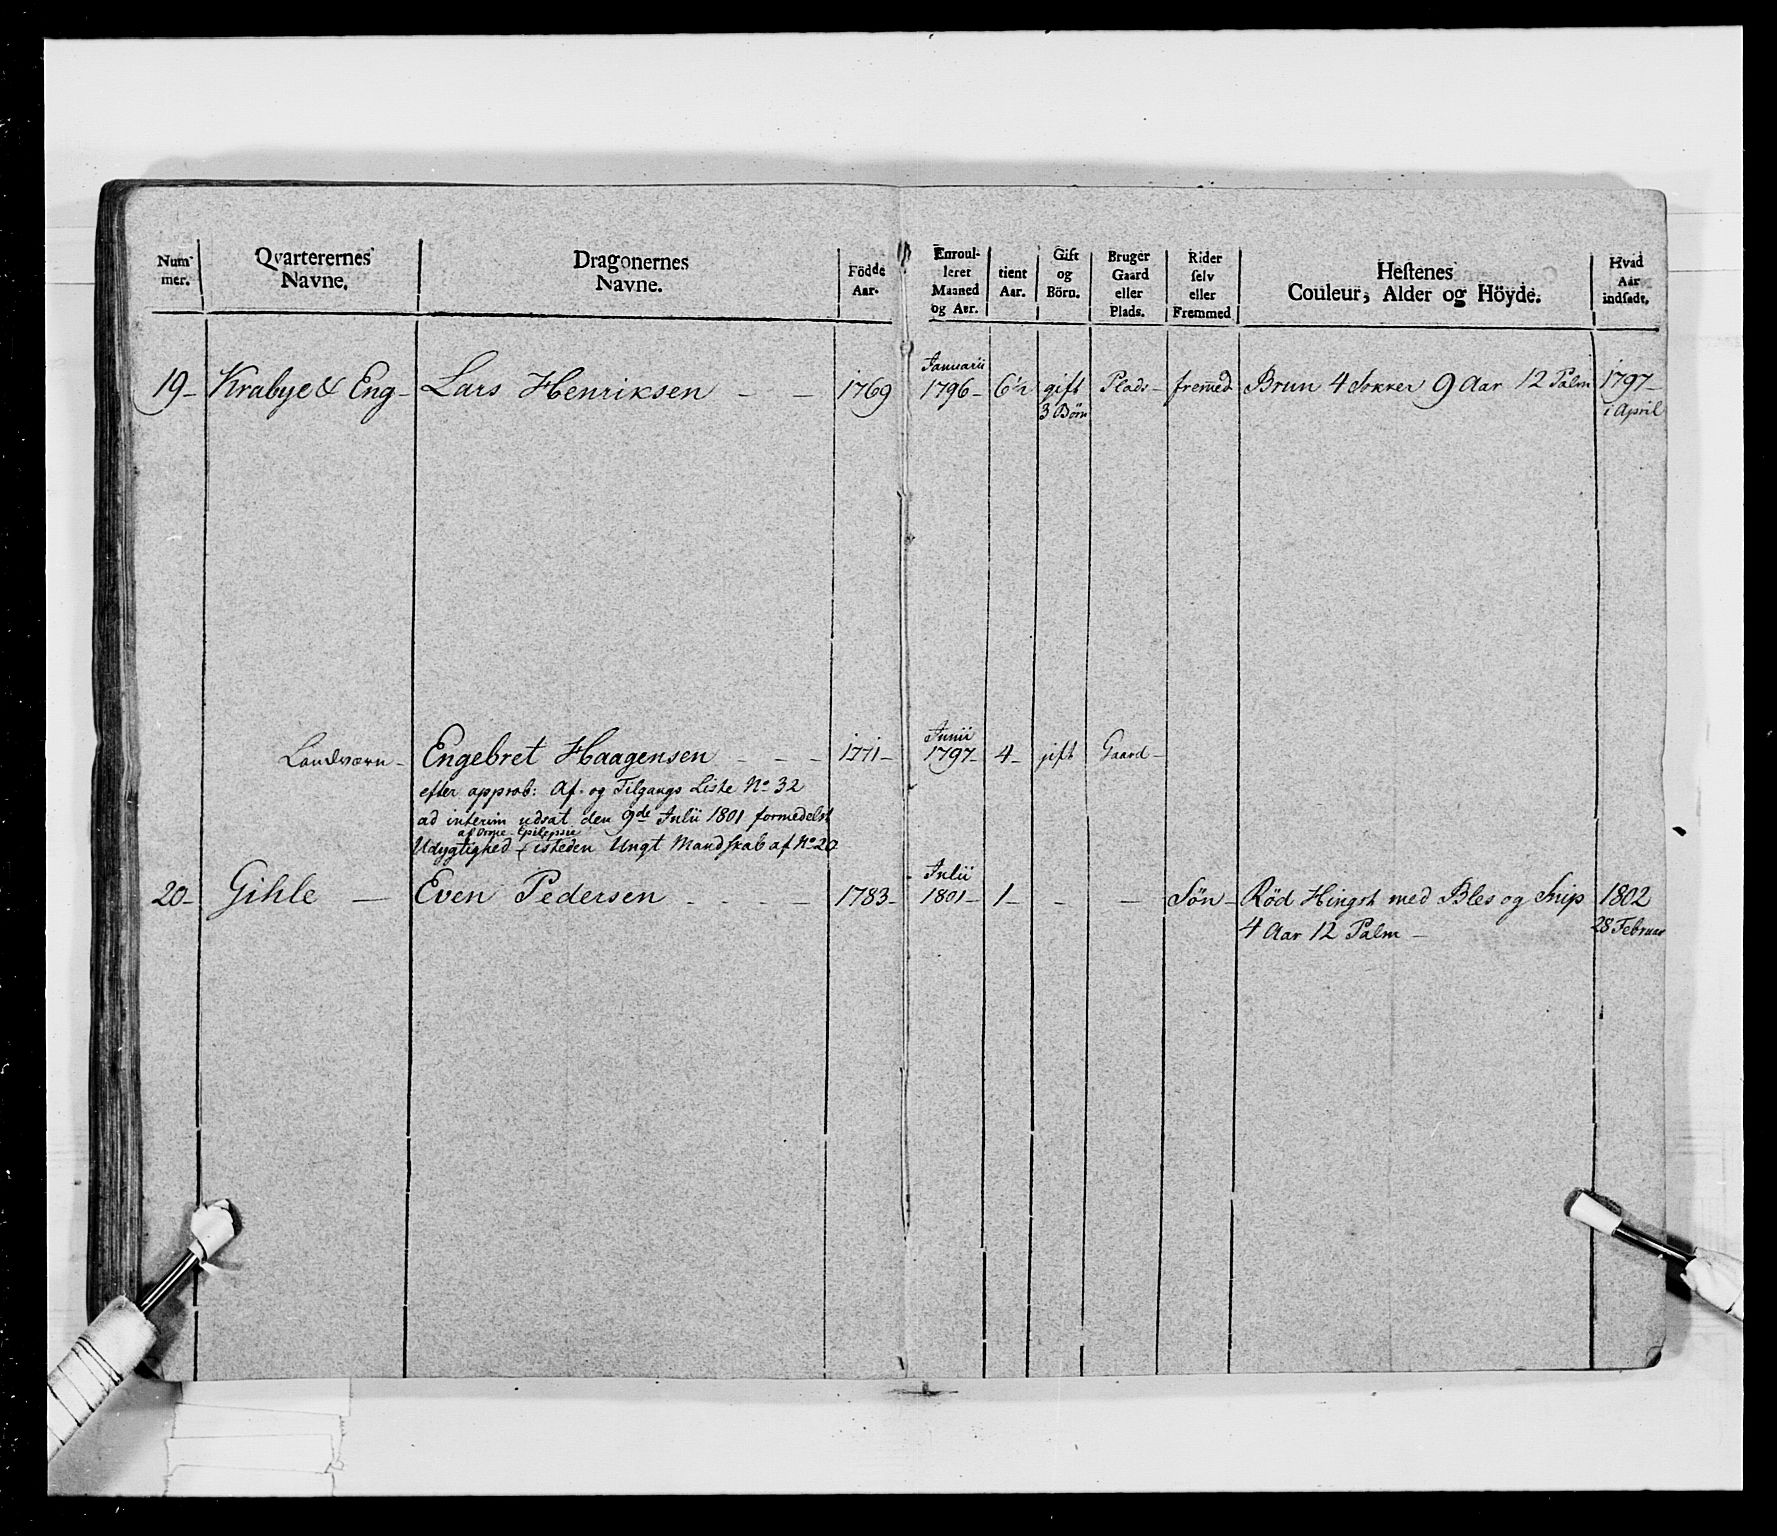 Num- mer. Qvarterernes Navne. Dragonernes Navne. Födde Aar. Enroul- leret Maaned og Aar. tient Aar. Gift og Börn. Bruger Gaard eller Plads. Rider selv eller Fremmed Hestenes Couleur, Alder og Höyde. Hvad Aar indsadt.
Januarii
19- Krabye & Eng- Lars Henriksen - - 1769 1796- 6½ gift Plads- fremed Brun 4 Sokker 9 Aar 12 Palm 1797-
3 Börn i April
Junii
Landværn- Engebret Haagensen - - - 1771- 1797- 4- gift Gaard-
efter approb: Af- og Tilgangs Liste No 32
ad interim udsat den 9de Julii 1801 formedelst
af Orme-Epilepsie
Udygtighed isteden Ungt Mandskab af No 20
Julii
20- Gihle - Even Pedersen - - - - 1783- 1801- 1- - - Søn- Rød Hingst med Bles og Snip 1802
4 Aar 12 Palm - 28 Februar